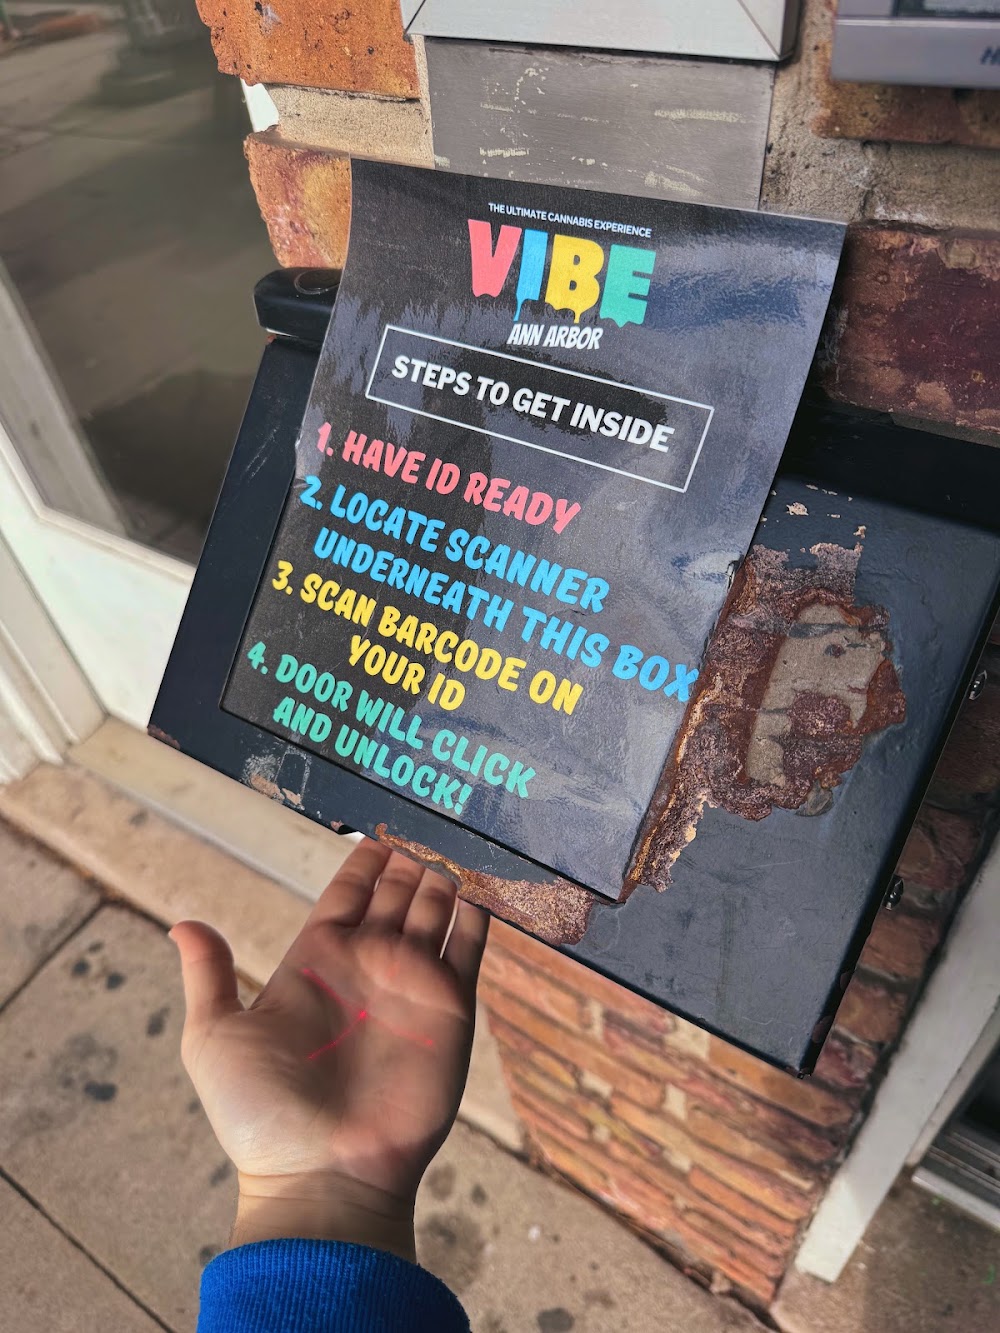 THE ULTIMATE CANNABIS EXPERIENCE
VIBE
ANN ARBOR
STEPS TO GET INSIDE
1. HAVE ID READY
2. LOCATE SCANNER
UNDERNEATH THIS BOX
3. SCAN BARCODE ON
YOUR ID
4. DOOR WILL CLICK
AND UNLOCK!